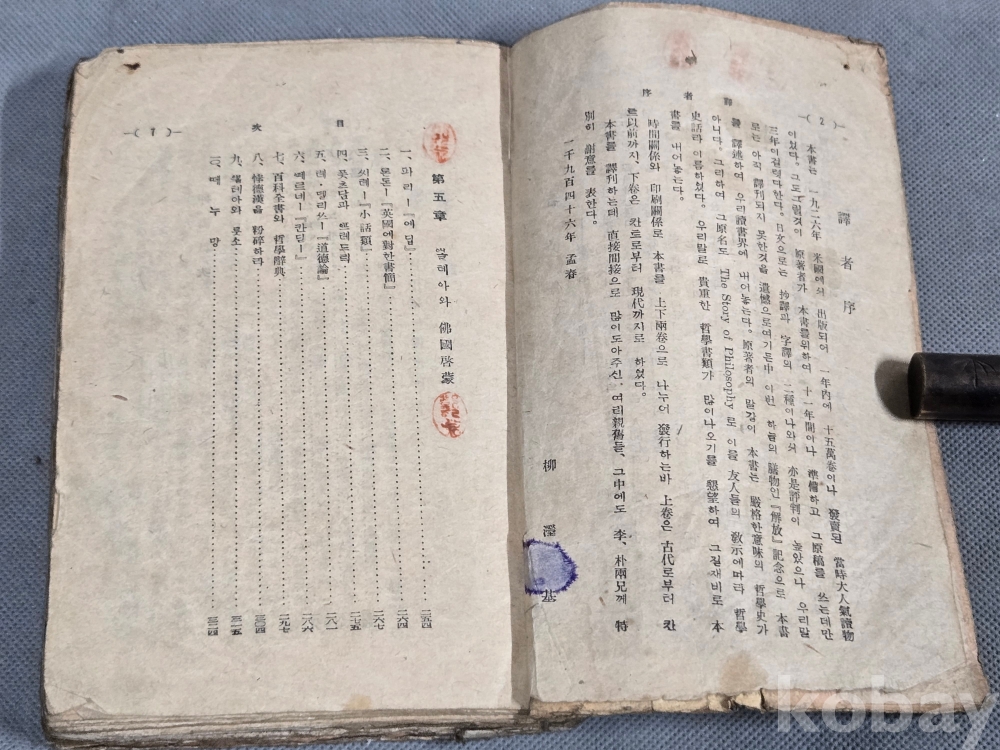 —( 2 )—
譯者序
譯者序
本書는 一九二六年 米國에서 出版되어 一年內에 十五萬卷이나 發賣된 當時大人氣讀物
이었다。그도그럴것이 原著者가 本書를위하여 十一年間이나 準備하고 그原稿를 쓰는데만
三年이걸렸다한다。日文으로는 抄譯과 字譯의 二種이나와서 亦是評判이 높았으나 우리말
로는 아직 譯刊되지 못한것을 遺憾으로여기든中 이번 하늘의 膳物인『解放』記念으로 本書
를 譯述하여 우리讀書界에 내어놓는다。原著者의 말같이 本書는 嚴格한意味의 哲學史가
아니다。그리하여 그原名도 The Story of Philosophy로 이를 友人들의 敎示에따라 哲學
史話라 이름하였다。우리말로 貴重한 哲學書類가 많이나오기를 懇望하여 그길재비로 本
書를 내어놓는다。
時間關係와 印刷關係로 本書를 上下兩卷으로 나누어 發行하는바 上卷은 古代로부터 칸
트以前까지、下卷은 칸트로부터 現代까지로 하였다。
本書를 譯刊하는데 直接間接으로 많이도아주신、여러親舊들、그中에도 李、朴兩兄께 特
別히 謝意를 表한다。
一千九百四十六年 孟春
柳 基
—( 7 )—
目次
第五章 볼테아와 佛國啓蒙
一、파리ー『에딮』 二五四
二、론돈ー『英國에對한書簡』 二六四
三、씨레ー『小話類』 二六七
四、폿츠담과 프레드릭 二七五
五、레·델리쓰ー『道德論』 二八一
六、뻬르네ー『칸딛ー』 二八六
七、百科全書와 哲學辭典 二九七
八、悖德漢을 粉碎하라 三〇四
九、볼테아와 룻소 三一五
一〇、떼누망 三二四
kobay